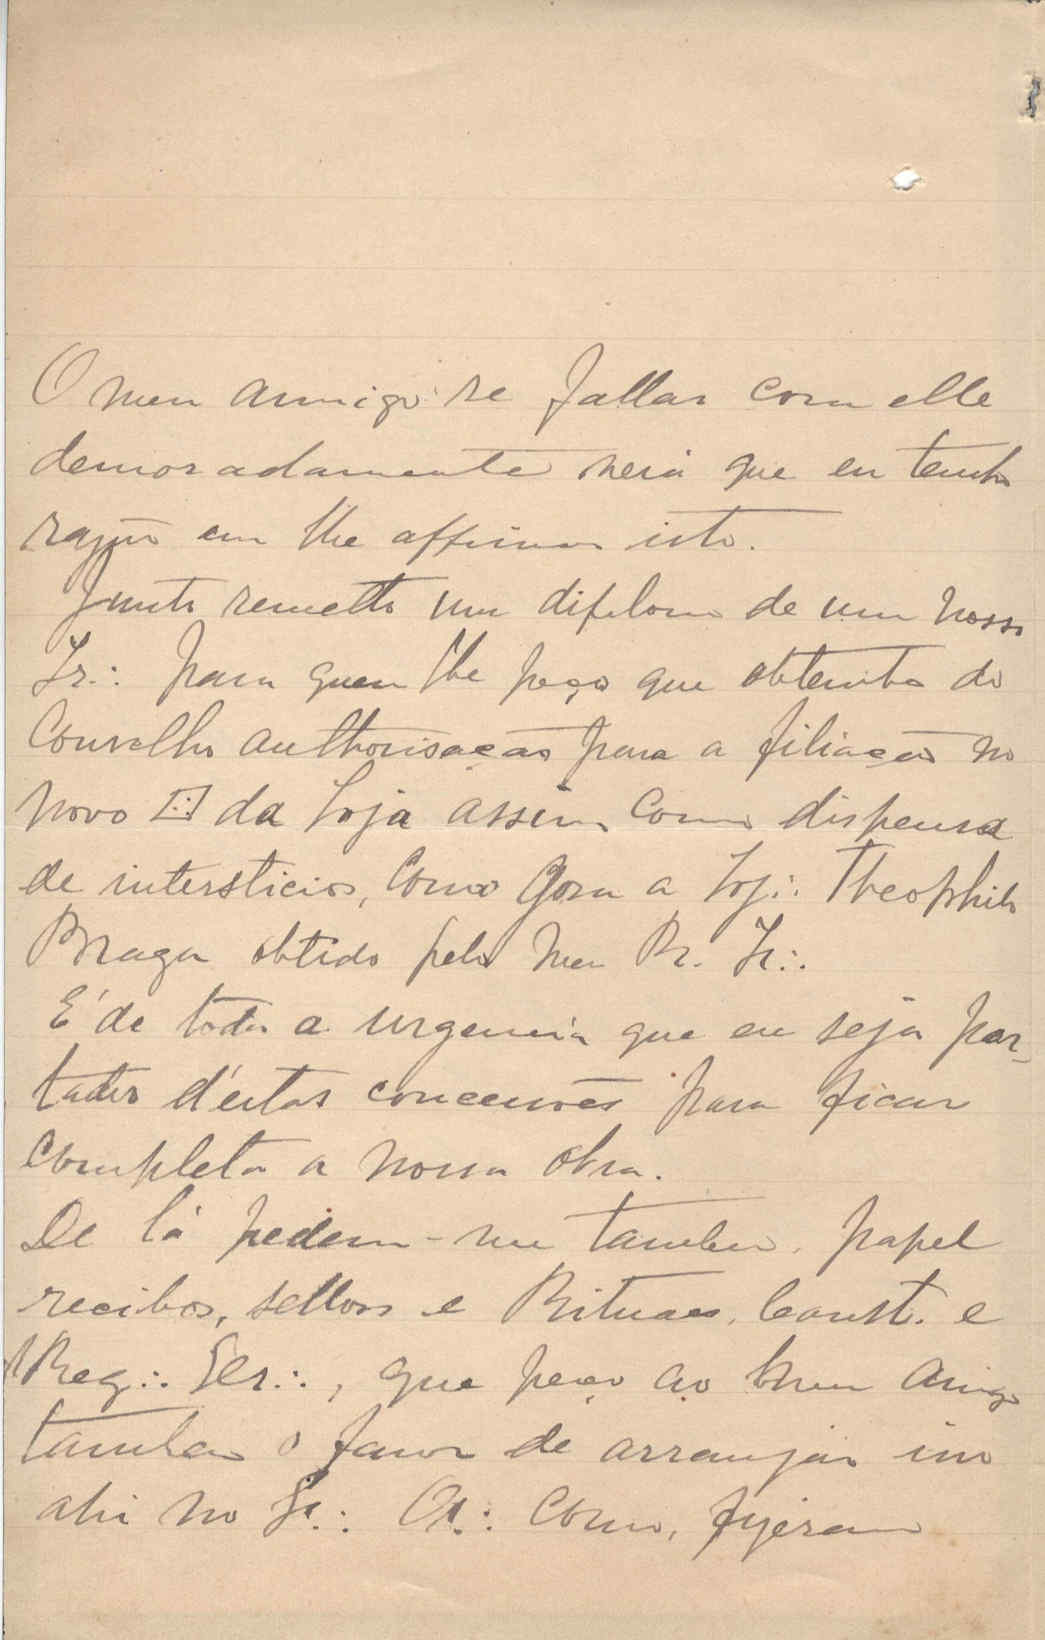 O meu amigo se fallar com elle
demoradamente verá que eu tenho
razão em lhe affirmar isto.
Junto remetto um diploma de um nosso
Ir∴ para quem lhe peço que obtenha do
Conselho authorisação para a filiação no
novo da Loja assim como dispensa
de intersticios, como gosa a Loj∴ Theophilo
Braga obtido pelo meu Pr. Ir∴.
É de toda a urgencia que eu seja por-
tador d'estas concessões para ficar
completa a nossa obra.
De lá pedem-me tambem, papel
recibos, sellos e Rituaes, Const. e
Reg∴ Ger∴, que peço ao bom amigo
tambem o favor de arranjar isso
ahi no Gr∴ Or∴ como, fizeram